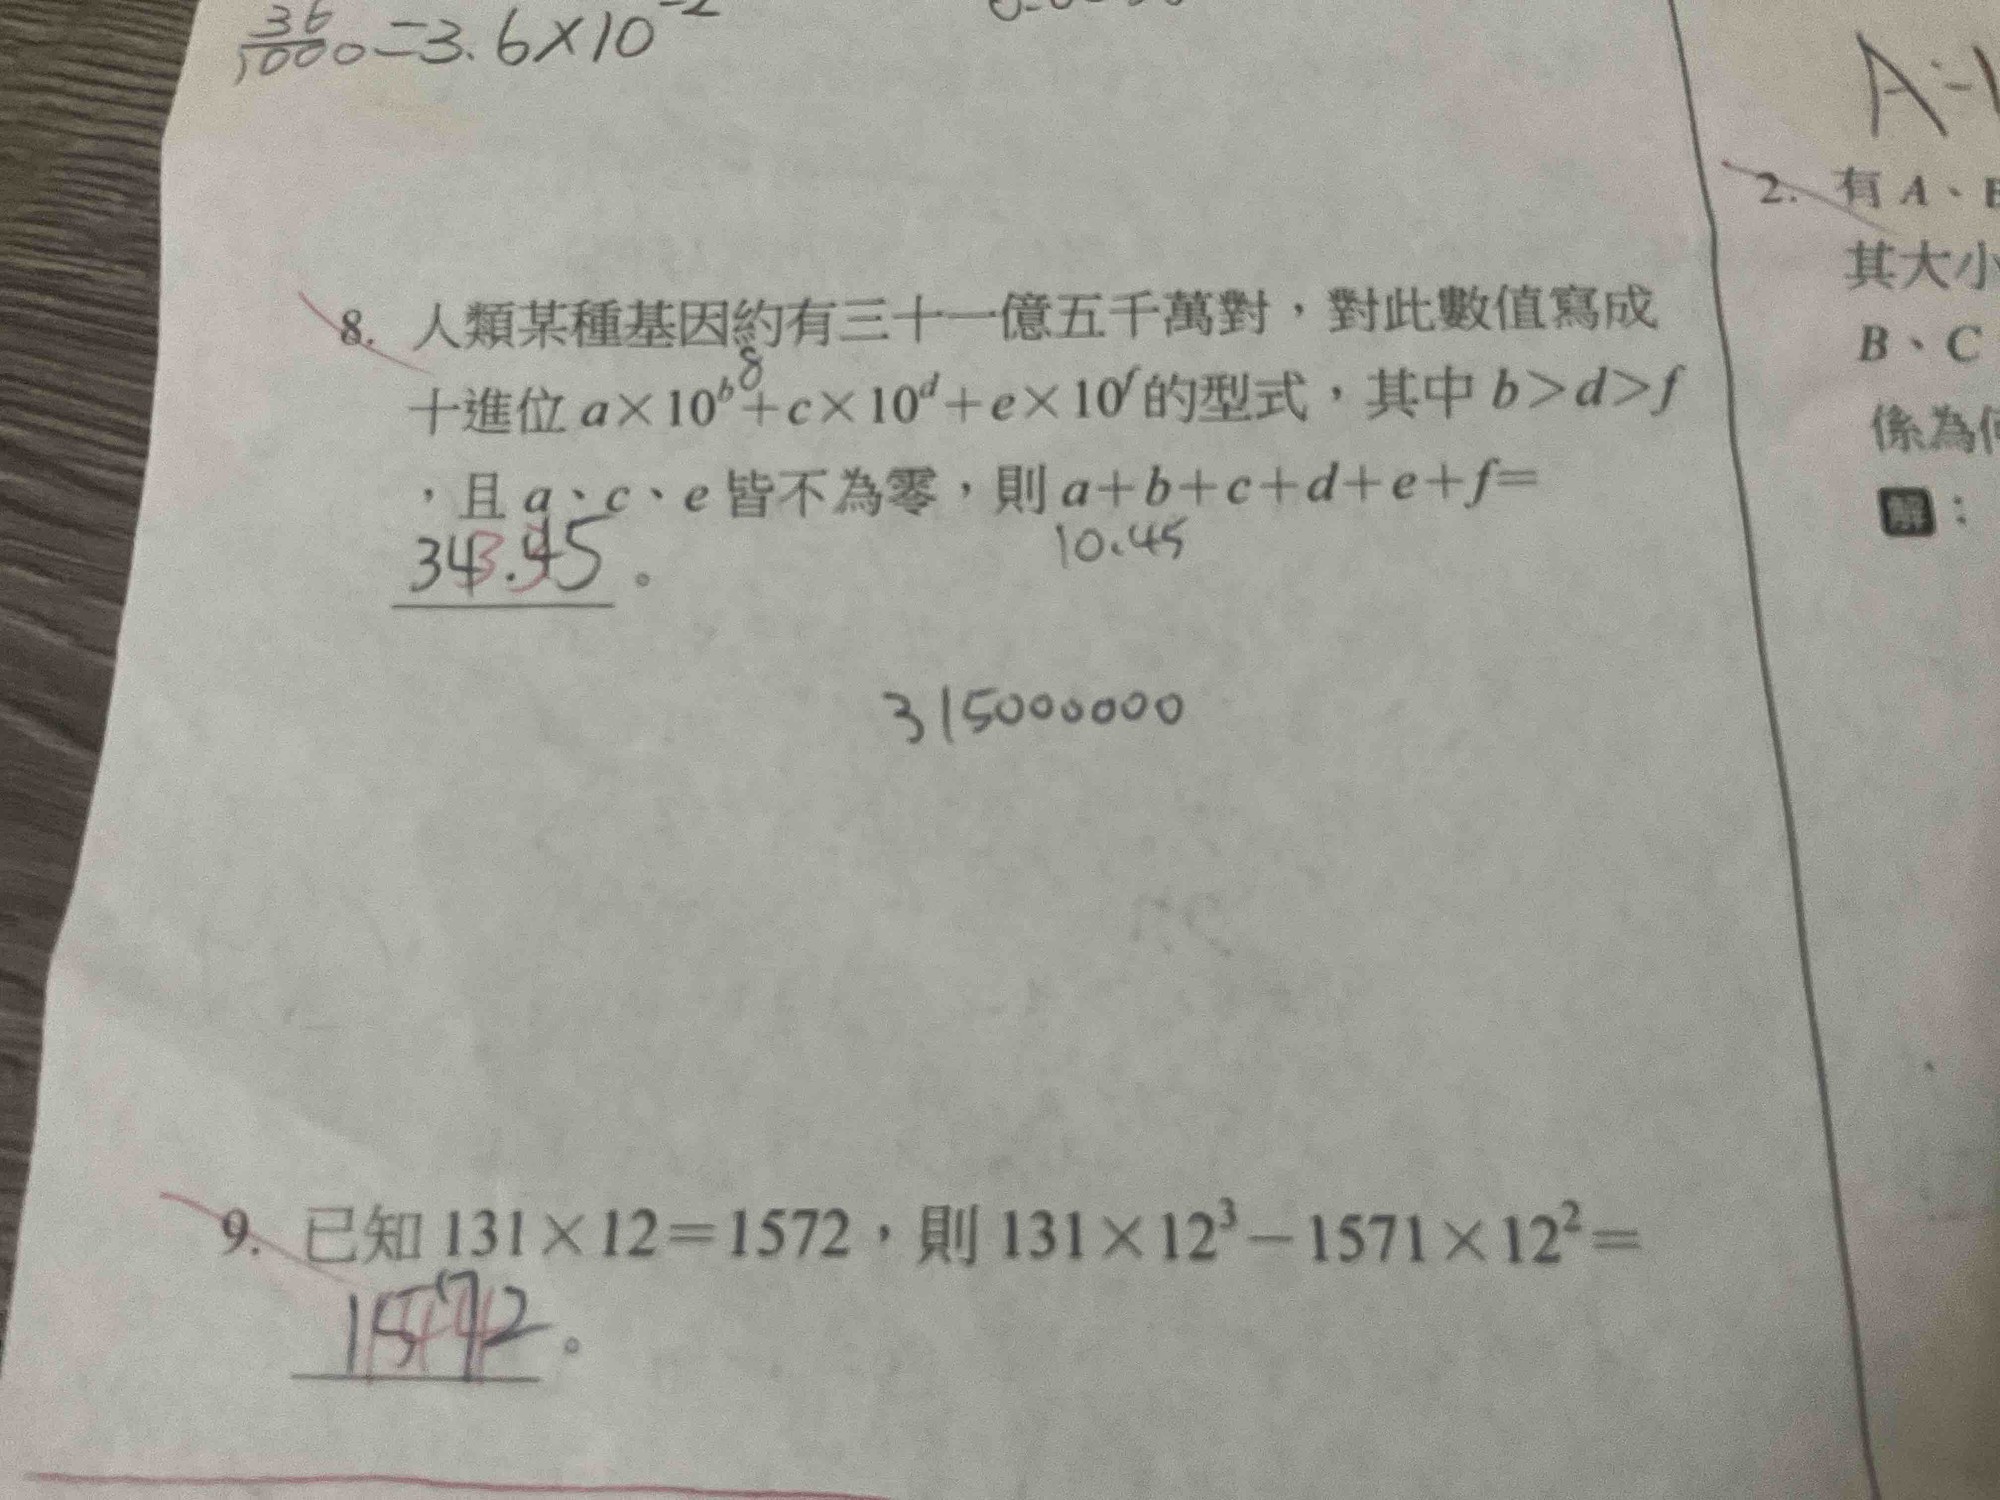 36
1000 = 3.6×10⁻²
A:-1
8. 人類某種基因約有三十一億五千萬對，對此數值寫成
8
十進位 a×10ᵇ+c×10ᵈ+e×10ᶠ的型式，其中 b>d>f
，且 a、c、e 皆不為零，則 a+b+c+d+e+f=
10.45
315000000
9. 已知 131×12=1572，則 131×12³−1571×12²=
1572。
2. 有 A、B
其大小
B、C
係為何
解：